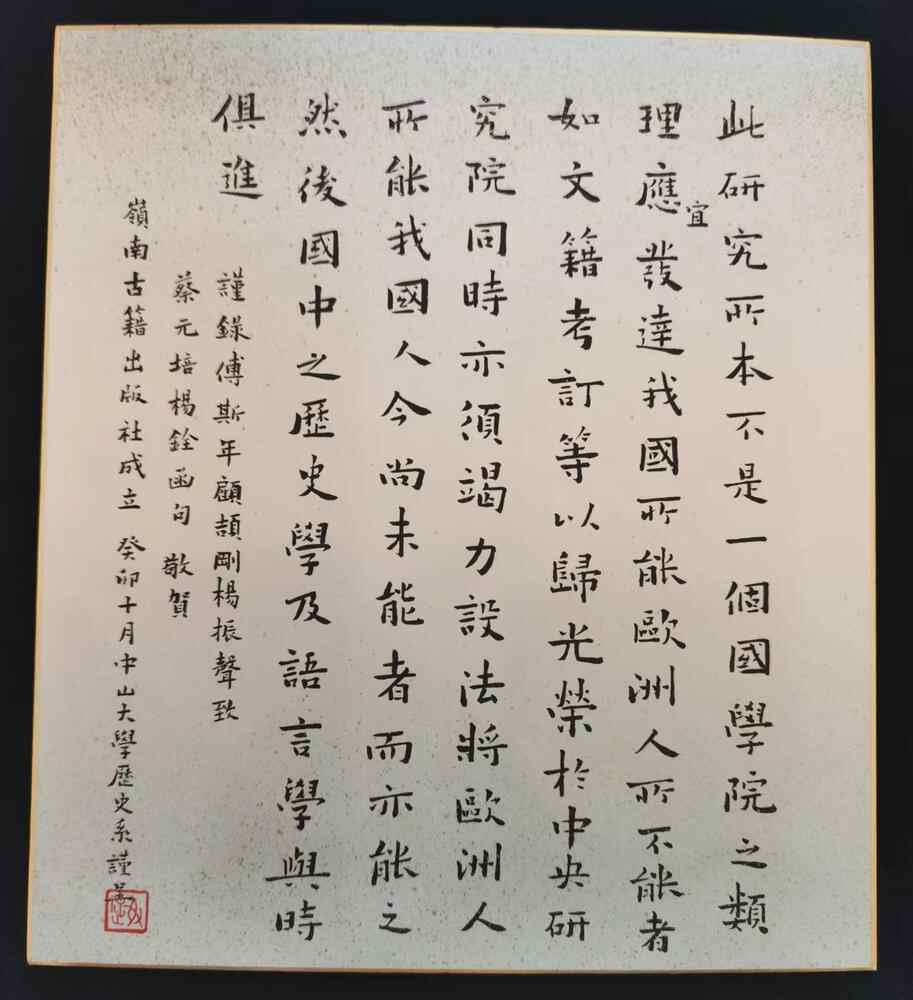 此研究所本不是一個國學院之類
理應宜發達我國所能歐洲人所不能者
如文籍考訂等以歸光榮於中央研
究院同時亦須竭力設法將歐洲人
所能我國人今尚未能者而亦能之
然後國中之歷史學及語言學與時
俱進
謹錄傅斯年顧頡剛楊振聲致
蔡元培楊銓函句 敬賀
嶺南古籍出版社成立 癸卯十月中山大學歷史系謹